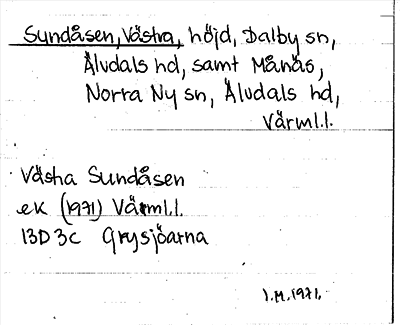 Sundåsen, Västra, höjd, Dalby sn,
Älvdals hd, samt Månäs,
Norra Ny sn, Älvdals hd,
Värml.l.
Västra Sundåsen
ek (1971) Värml.l.
13D 3c Grysjöarna
I.M. 1971.